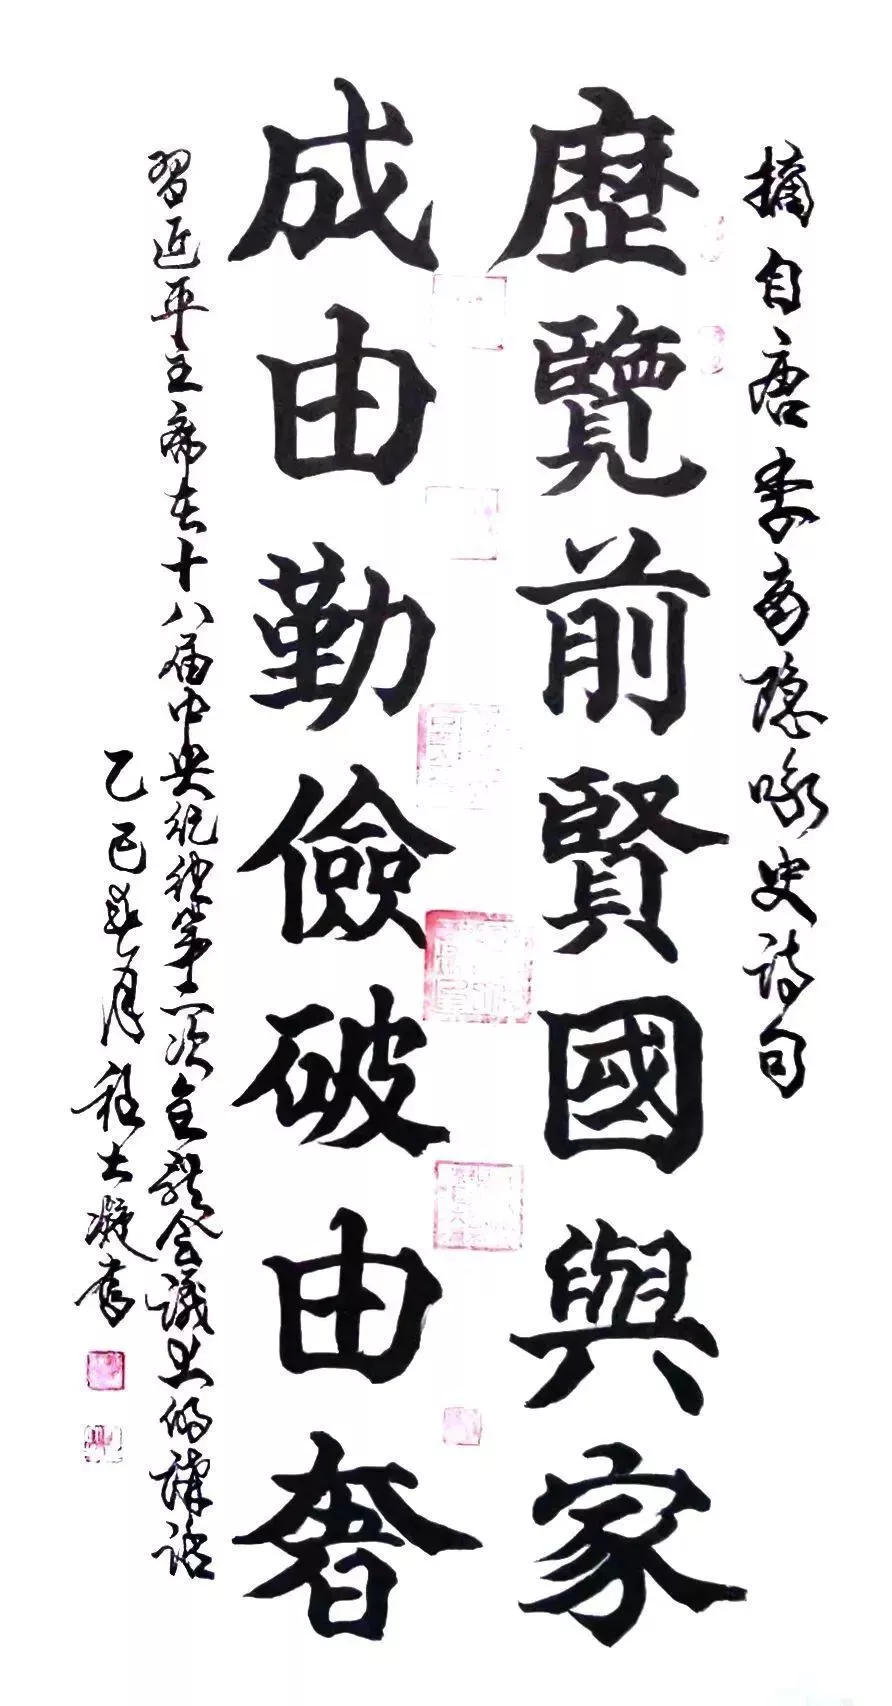 摘自唐李商隐咏史诗句
歷覽前賢國與家
成由勤儉破由奢
習近平主席在十八届中央纪律第二次全体会议上的讲话
乙巳春月程士凝書